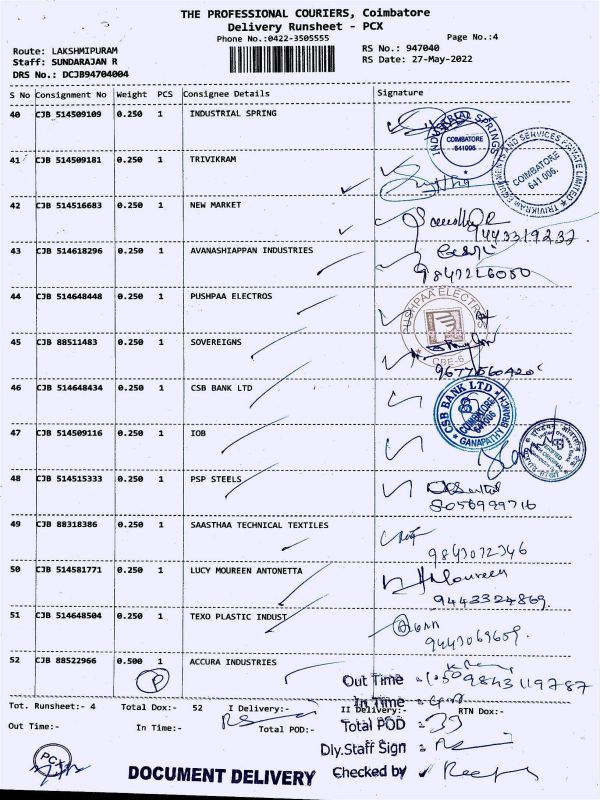 THE PROFESSIONAL COURIERS, Coimbatore
Delivery Runsheet - PCX
Phone No.:0422-3505555
Page No.:4
Route: LAKSHMIPURAM
RS No.: 947040
Staff: SUNDARAJAN R
RS Date: 27-May-2022
DRS No.: DCJB94704004
S No Consignment No Weight PCS Consignee Details Signature
40 CJB 514509109 0.250 1 INDUSTRIAL SPRING
INDUSTRIAL SPRINGS COIMBATORE 641 006
41 CJB 514509181 0.250 1 TRIVIKRAM
TRIVIKRAM EQUIPMENTS AND SERVICES PRIVATE LIMITED COIMBATORE 641 006.
42 CJB 514516683 0.250 1 NEW MARKET
9443319232
43 CJB 514618296 0.250 1 AVANASHIAPPAN INDUSTRIES
9847226050
44 CJB 514648448 0.250 1 PUSHPAA ELECTROS
PUSHPAA ELECTROS CBE-6
45 CJB 88511483 0.250 1 SOVEREIGNS
46 CJB 514648434 0.250 1 CSB BANK LTD
CSB BANK LTD COIMBATORE 641006 GANAPATHY BRANCH
47 CJB 514509116 0.250 1 IOB
48 CJB 514515333 0.250 1 PSP STEELS
8056999716
49 CJB 88318386 0.250 1 SAASTHAA TECHNICAL TEXTILES
9843072346
50 CJB 514581771 0.250 1 LUCY MOUREEN ANTONETTA
Moureen
9443324869.
51 CJB 514648504 0.250 1 TEXO PLASTIC INDUST
9443069609.
52 CJB 88522966 0.500 1 ACCURA INDUSTRIES
P
Out Time 9843119787
In Time
Tot. Runsheet:- 4 Total Dox:- 52 I Delivery:- II Delivery:- RTN Dox:-
Out Time:- In Time:- Total POD:-
Total POD :
Dly.Staff Sign :
Checked by
PCX
DOCUMENT DELIVERY